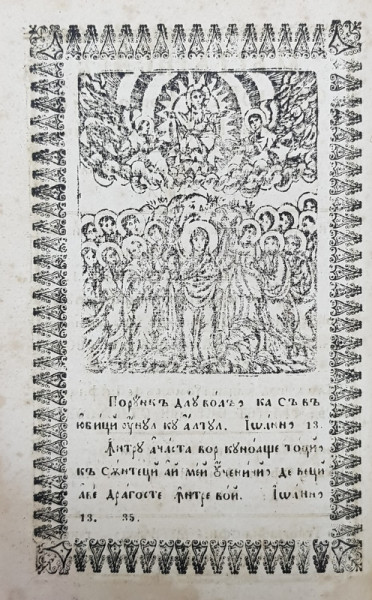 Порꙋнкъ даꙋ воаъѡ ка съ въ
юбици оунꙋл кꙋ алтꙋл. Іѡанно 13.
Ꙟтрꙋ ачаста вор кꙋноаще тоций
къ сжнтеци ай мей оученичий де веци
аве драгосте ꙟтре вой. Іѡанно
13. 35.